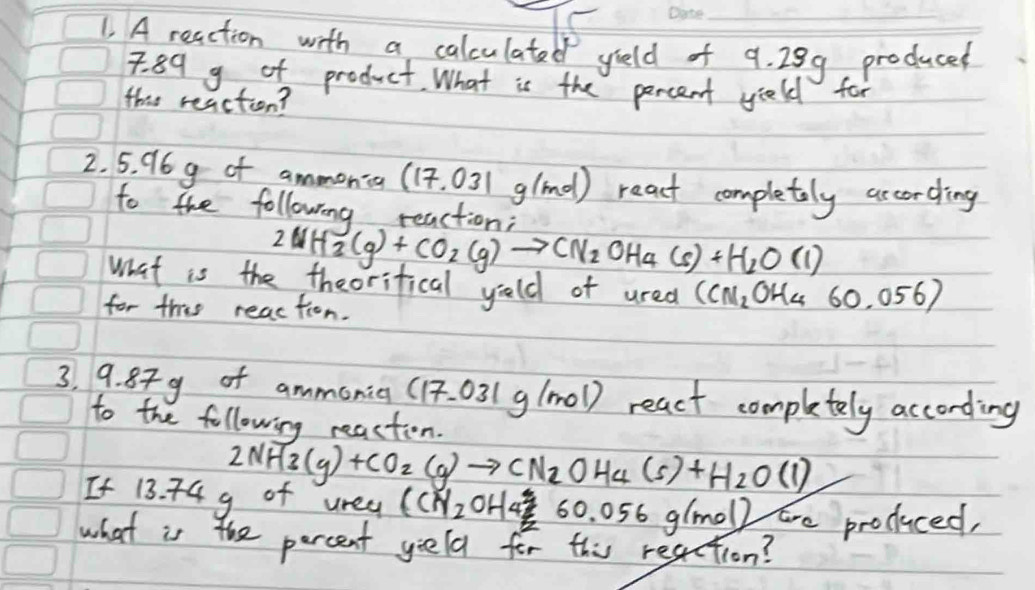 Date
15
1. A reaction with a calculated yield of 9.29g produced
7.89 g of product. What is the percent yield for
this reaction?
2. 5.96 g of ammonia (17.031 g/mol) react completely according
to the following reaction:
2NH3(g) + CO2 (g) → CN2 OH4 (s) + H2O (l)
What is the theoritical yield of urea (CN2OH4 60.056)
for this reaction.
3. 9.87 g of ammonia (17.031 g/mol) react completely according
to the following reaction.
2NH3(g) + CO2 (g) → CN2 OH4 (s) + H2O (l)
If 13.74 g of urea (CN2OH4 60.056 g/mol) are produced,
what is the percent yield for this reaction?